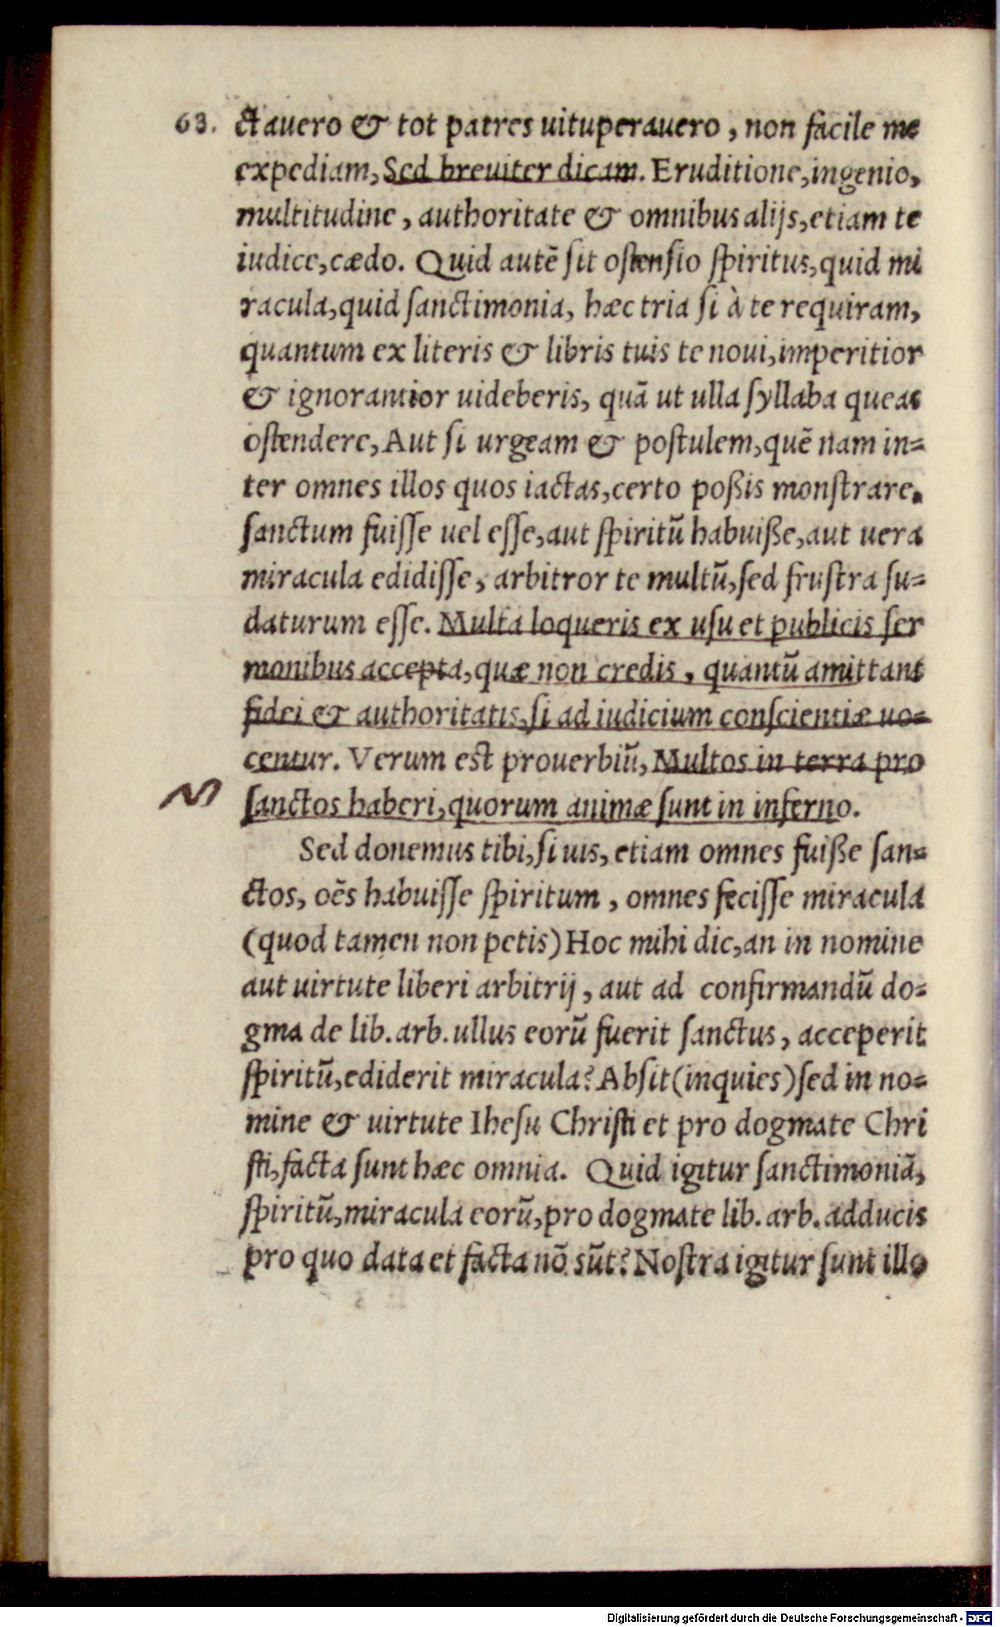 63. ctauero & tot patres uituperauero, non facile me
expediam, Sed breuiter dicam. Eruditione, ingenio,
multitudine, authoritate & omnibus alijs, etiam te
iudice, cædo. Quid autē sit ostensio spiritus, quid mi
racula, quid sanctimonia, hæc tria si à te requiram,
quantum ex literis & libris tuis te noui, imperitior
& ignorantior uideberis, quā ut ulla syllaba queas
ostendere, Aut si urgeam & postulem, quē nam in=
ter omnes illos quos iactas, certo poßis monstrare,
sanctum fuisse uel esse, aut spiritū habuiße, aut uera
miracula edidisse, arbitror te multū, sed frustra su=
daturum esse. Multa loqueris ex usu et publicis ser
monibus accepta, quæ non credis, quantū amittant
fidei & authoritatis, si ad iudicium conscientiæ uo=
centur. Verum est prouerbiū, Multos in terra pro
sanctos haberi, quorum animæ sunt in inferno.
Sed donemus tibi, si uis, etiam omnes fuiße san=
ctos, oēs habuisse spiritum, omnes fecisse miracula
(quod tamen non petis) Hoc mihi dic, an in nomine
aut uirtute liberi arbitrij, aut ad confirmandū do=
gma de lib. arb. ullus eorū fuerit sanctus, acceperit
spiritū, ediderit miracula? Absit (inquies) sed in no=
mine & uirtute Ihesu Christi et pro dogmate Chri
sti, facta sunt hæc omnia. Quid igitur sanctimoniā,
spiritū, miracula eorū, pro dogmate lib. arb. adducis
pro quo data et facta nō sūt? Nostra igitur sunt illo
Digitalisierung gefördert durch die Deutsche Forschungsgemeinschaft - DFG